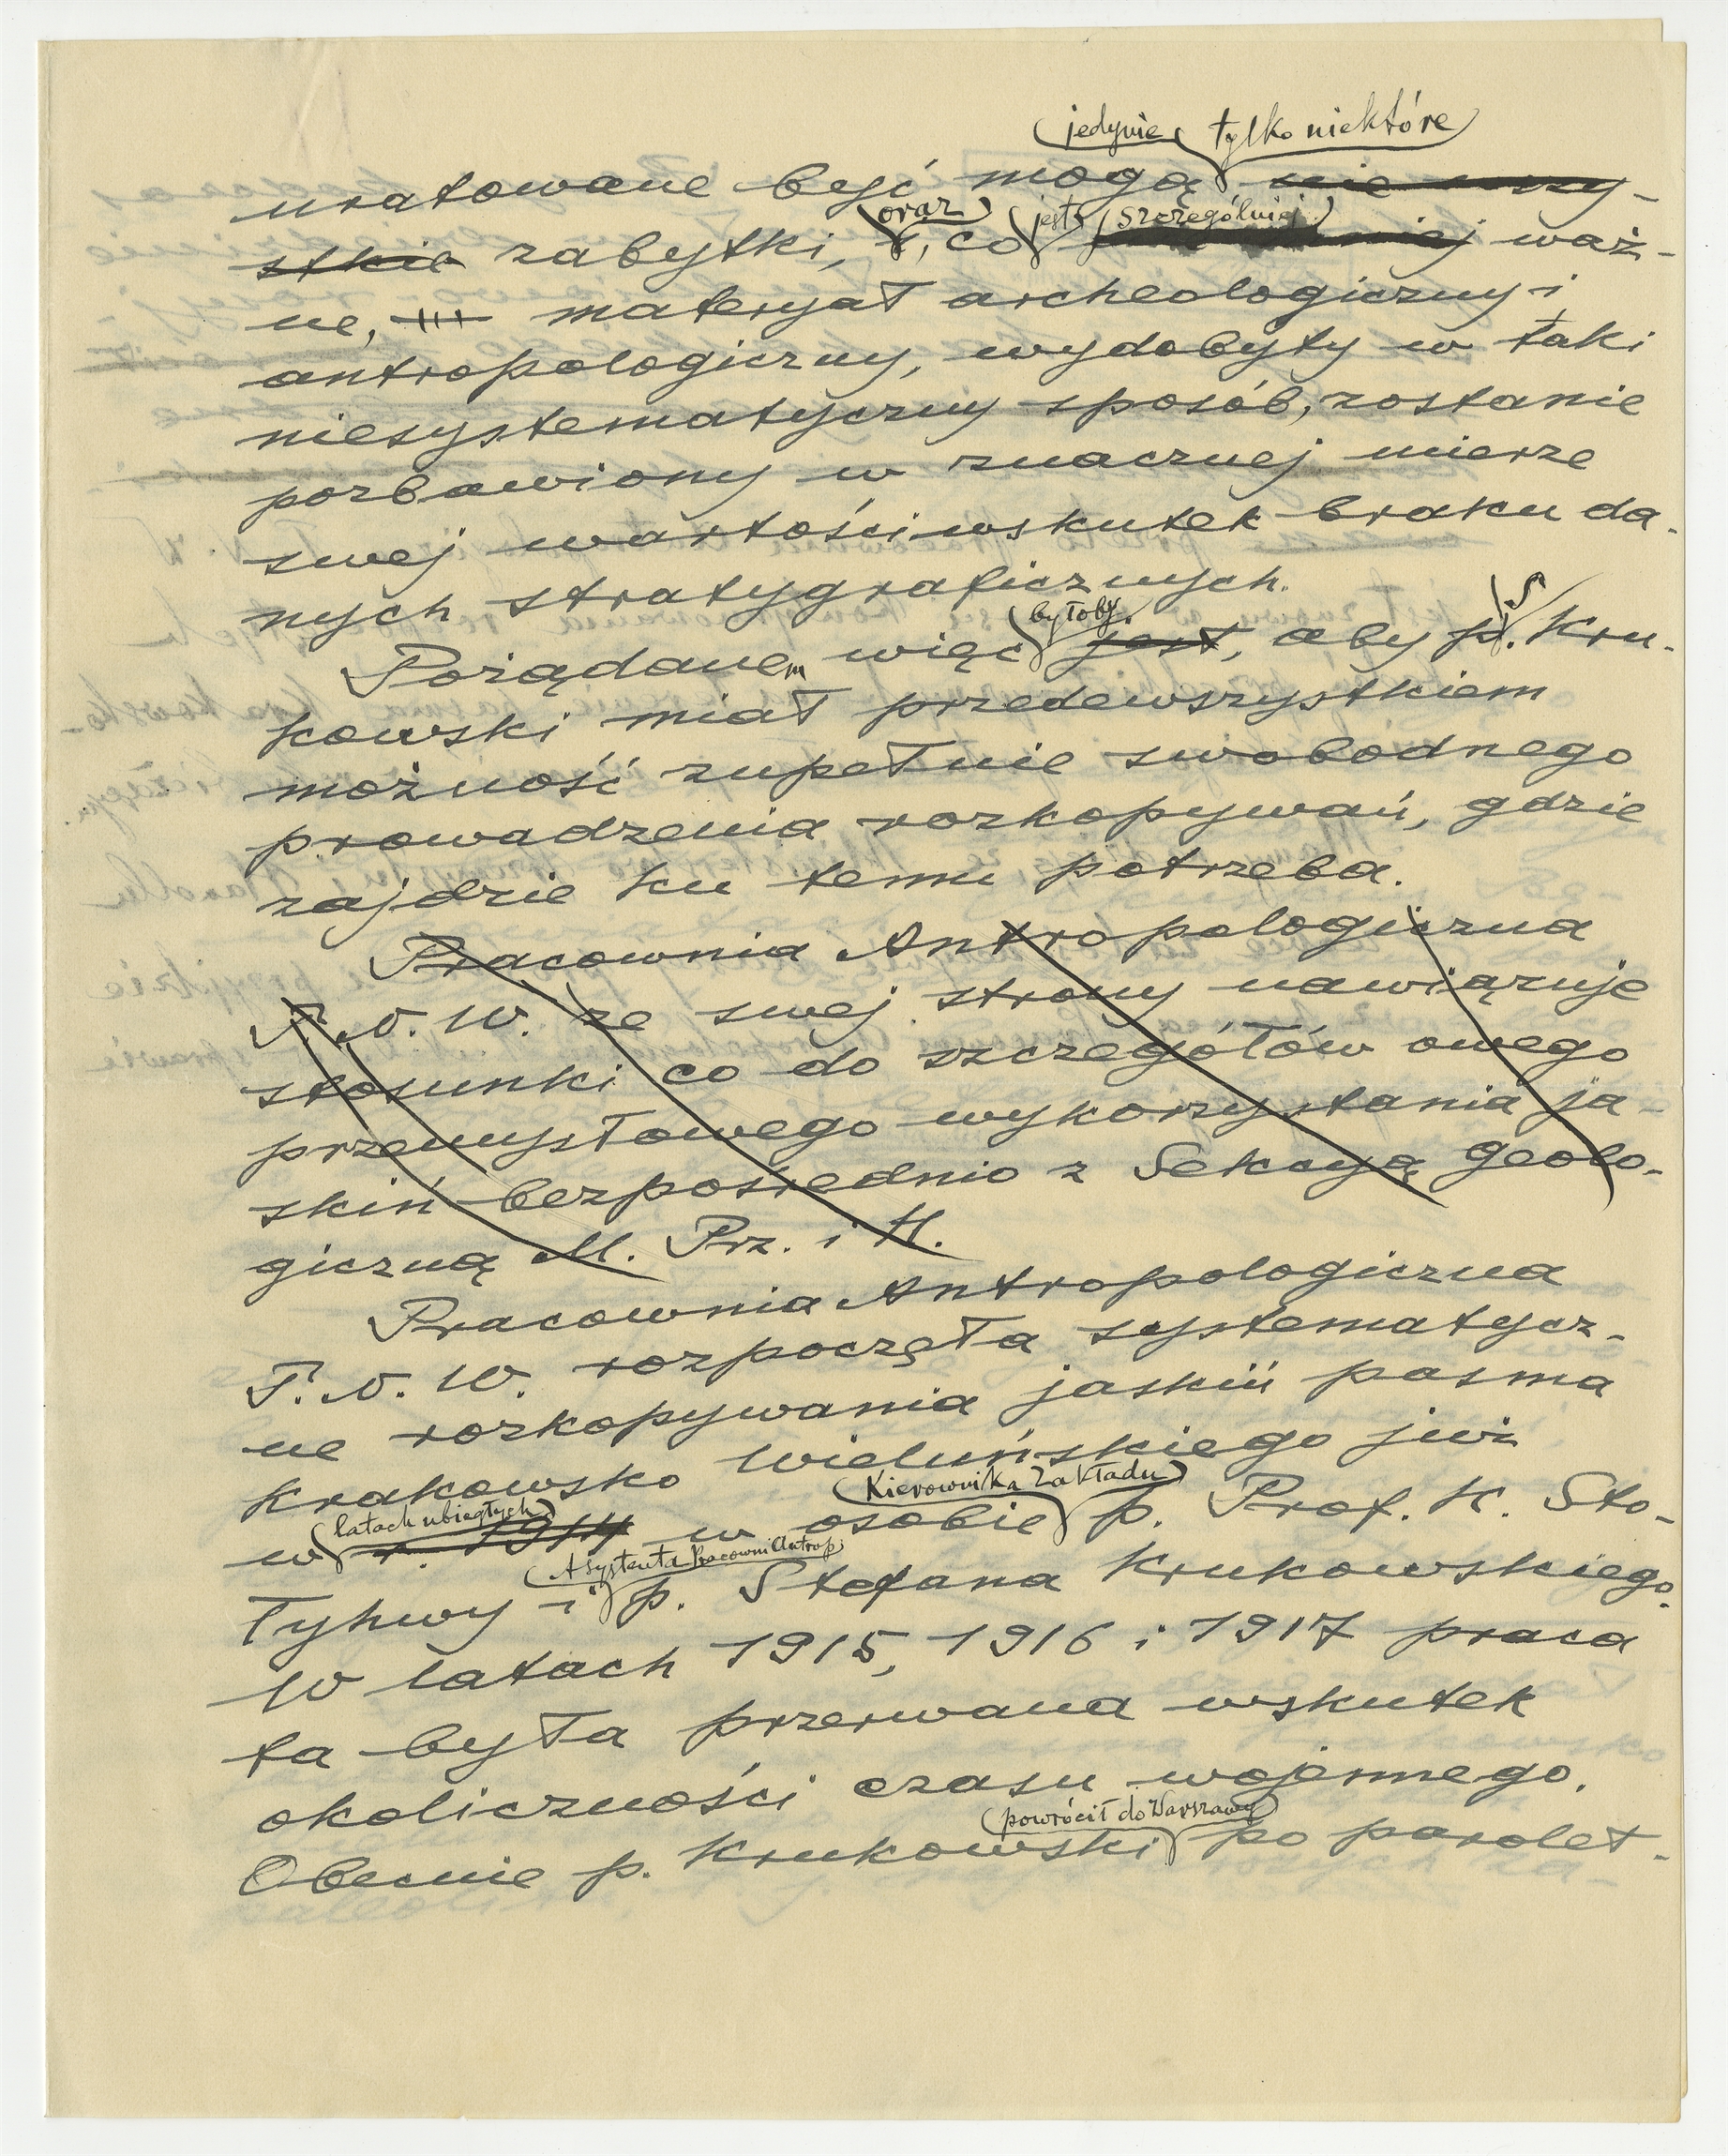 jedynie tylko niektóre
uratowane być mogą nie wszy-
oraz jest szczególniej
stkie zabytki, i, co waż-
ne, materyał archeologiczny i
antropologiczny, wydobyty w taki
niesystematyczny sposób, zostanie
pozbawiony w znacznej mierze
swej wartości wskutek braku da-
nych stratygraficznych.
byłoby S
Pożądanem więc jest, aby p. Kru-
kowski miał przedewszystkiem
możność zupełnie swobodnego
prowadzenia rozkopywań, gdzie
zajdzie ku temu potrzeba.
Pracownia Antropologiczna
T. N. W. ze swej strony nawiązuje
stosunki co do szczegółów owego
przemysłowego wykorzystania ja-
skiń bezpośrednio z Sekcyą geolo-
giczną M. Prz. i H.
Pracownia Antropologiczna
T. N. W. rozpoczęła systematycz-
ne rozkopywania jaskiń pasma
Krakowsko Wieluńskiego już
latach ubiegłych Kierownika Zakładu
w r. 1914 w osobie p. Prof. K. Sto-
Asystenta Pracowni Antrop.
łyhwy i p. Stefana Krukowskiego.
W latach 1915, 1916 i 1917 praca
ta była przerwana wskutek
okoliczności czasu wojennego.
powrócił do Warszawy
Obecnie p. Krukowski po parolet-